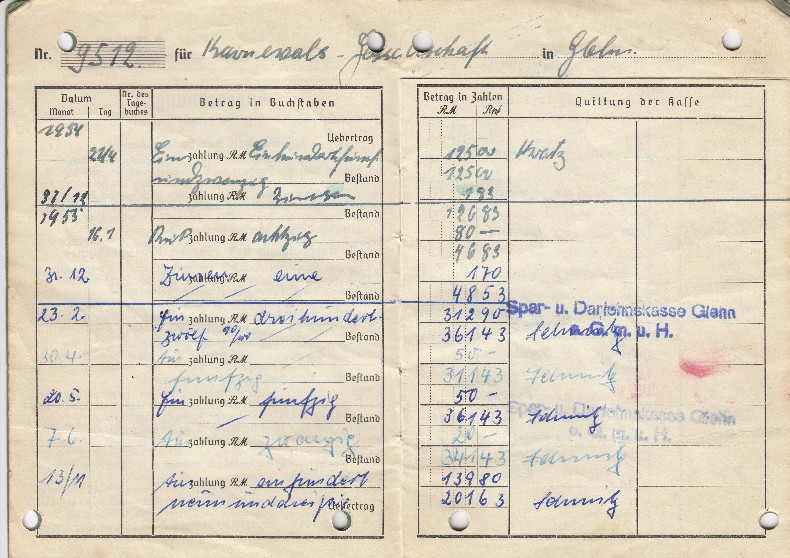 Nr. 9512 für Karnevals-Gesellschaft in Glehn
Datum
Monat Tag
Nr. des Tagebuches
Betrag in Buchstaben
Betrag in Zahlen
RM Rpf
Quittung der Kasse
1954
Uebertrag
22/4 Einzahlung RM Einhundertfünf- 125 00 Kratz
undzwanzig Bestand 125 00
31/12 zahlung RM Zinsen 1 83
1955 Bestand 126 83
16.1 Rückzahlung RM achtzig 80 —
Bestand 46 83
31.12 Zinsen zahlung RM eine 1 70
Bestand 48 53
Spar- u. Darlehnskasse Glehn
e. G. m. u. H.
23.2. Einzahlung RM dreihundert- 312 90
zwölf 90/00 Bestand 361 43 Schmitz
30.4. Auszahlung RM 50 —
fünfzig Bestand 311 43 Schmitz
20.5. Einzahlung RM fünfzig 50 —
Bestand 361 43 Schmitz
Spar- u. Darlehnskasse Glehn
e. G. m. u. H.
7.6. Auszahlung RM zwanzig 20 —
Bestand 341 43 Schmitz
13/1 Auszahlung RM einhundert 139 80
neununddreißig Uebertrag 201 63 Schmitz